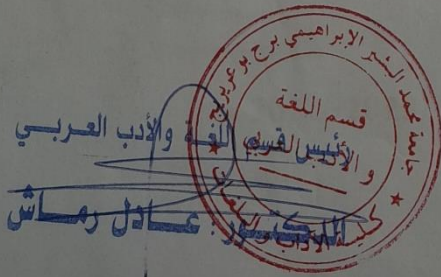 جامعة محمد البشير الإبراهيمي برج بوعريريج
قسم اللغة
والأدب العربي
كلية الآداب واللغات
رئيس قسم اللغة والأدب العربي
الدكتور: عادل رماش